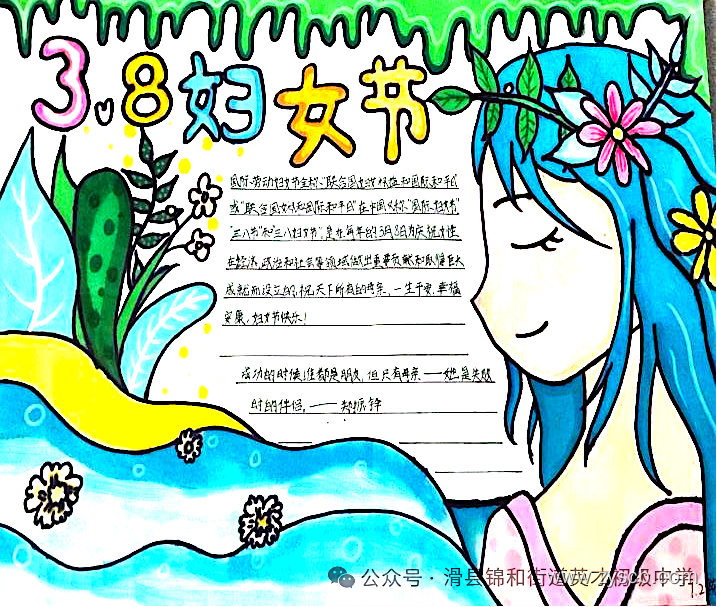 3.8妇女节
国际劳动妇女节全称“联合国妇女权益和国际和平日”
或“联合国女权和国际和平日”在中国又称“国际妇女节”
“三八节”和“三八妇女节”，是在每年的3月8日为庆祝女性
在经济，政治和社会等领域做出重要贡献和取得巨大
成就而设立的，祝天下所有的母亲，一生平安，幸福
安康，妇女节快乐！
成功的时候，谁都是朋友，但只有母亲——她是失败
时的伴侣。——郑振铎
公众号·滑县锦和街道英才初级中学